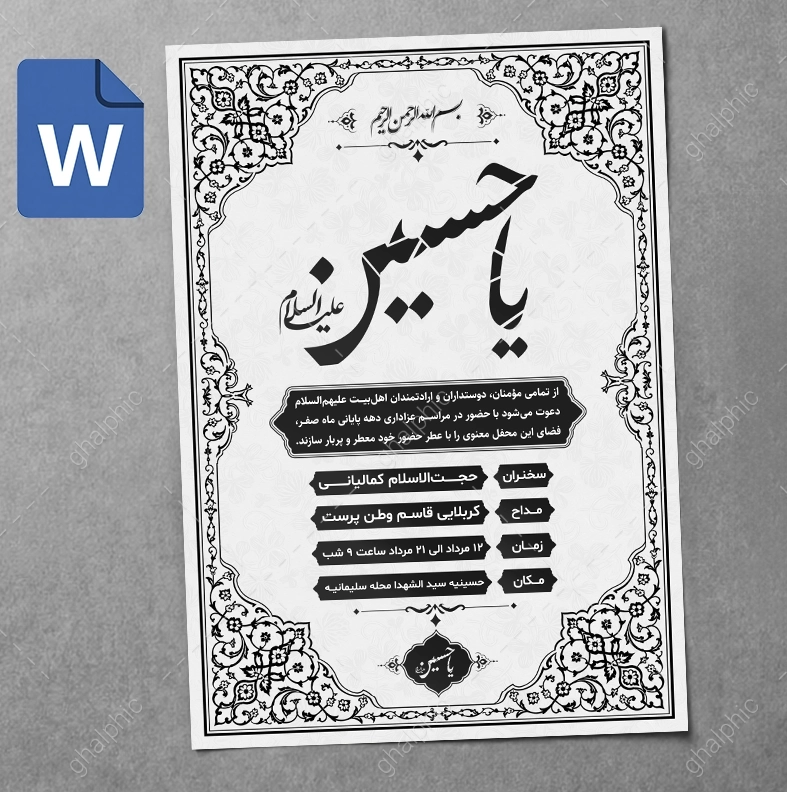 W
بسم الله الرحمن الرحیم
یا حسین
علیه السلام
از تمامی مؤمنان، دوستداران و ارادتمندان اهل‌بیت علیهم‌السلام
دعوت می‌شود با حضور در مراسم عزاداری دهه پایانی ماه صفر،
فضای این محفل معنوی را با عطر حضور خود معطر و پربار سازند.
سخنران حجت‌الاسلام کمالیانی
مداح کربلایی قاسم وطن پرست
زمان ۱۲ مرداد الی ۲۱ مرداد ساعت ۹ شب
مکان حسینیه سید الشهدا محله سلیمانیه
یا حسین
ghalphic